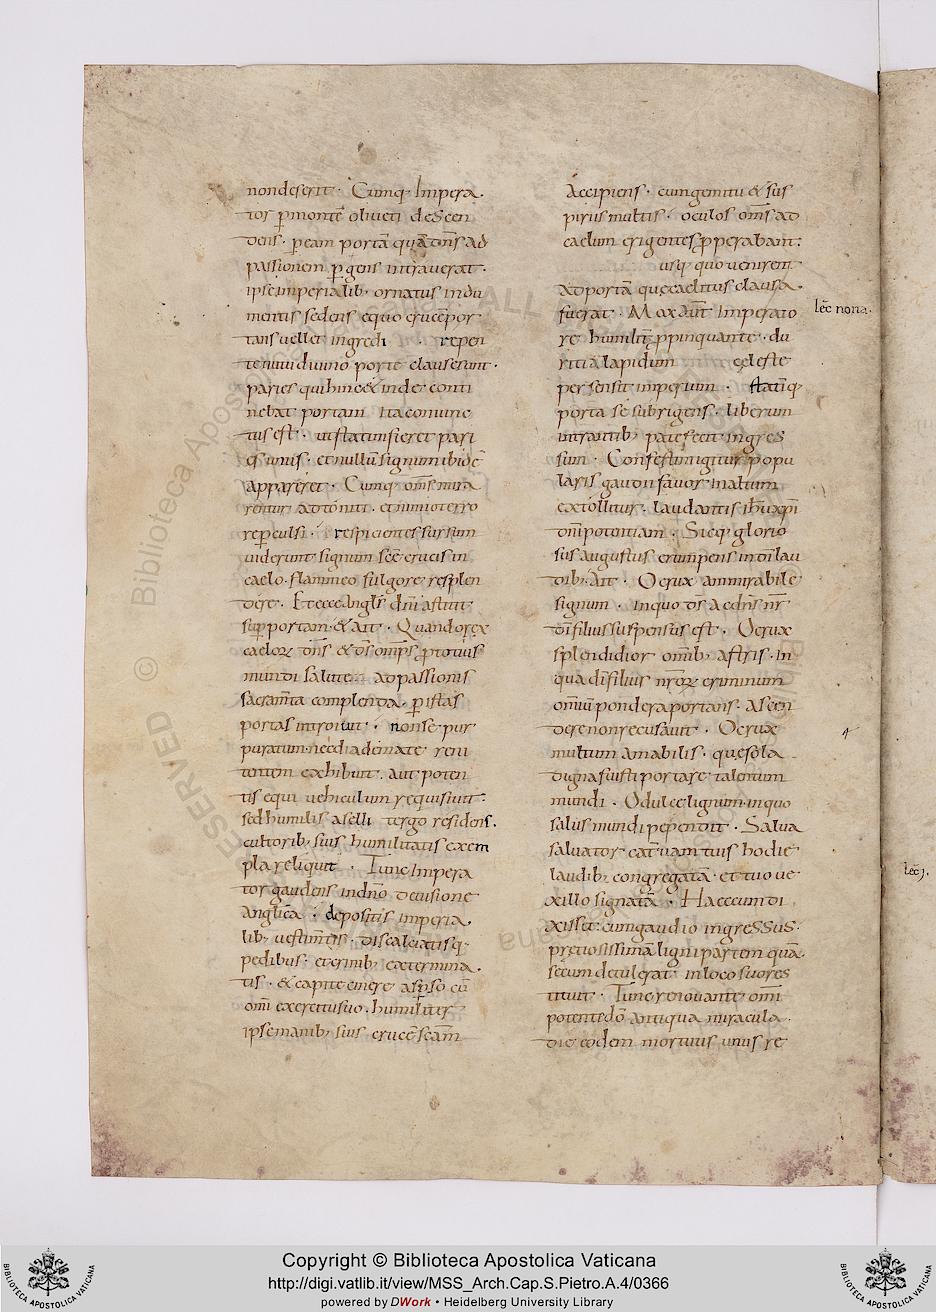 non deserit. Cumq; Impera
tor p̲ montē oliveti descen
dens. p̲ eam portā quā dn̄s ad
passionem p̲gens intraverat.
ipse imperialib; ornatus indu
mentis sedens equo crucē por
tans vellet ingredi. repen
te nutu divino porte clause sunt.
paries qui hinc & inde conti
nebat portam ita coniunc
tus est. ut statim fieret pari
es unus. et nullū signum ibidē
appareret. Cumq; om̄s mira
rentur adtoniti. et nimio terro
re p̲culsi. respicientes sursum
viderunt signum scē crucis in
caelo. flammeo fulgore resplen
dere. Et ecce angls̄ dnī astitit
sup̲ portam & ait. Quando rex
caelorꝝ dn̄s & ds̄ omp̄s p̲ totius
mundi salute ad passionis
sacram̄ta complenda. p̲ istas
portas introivit. non se pur
puratum nec diademate reni
tentem exhibuit. aut poten
tis equi vehiculum requisivit.
sed humilis aselli tergo residens.
cultorib; suis humilitatis exem
pla reliquit. Tunc Impera
tor gaudens in dn̄o de visione
anglīca. depositis imperia
lib; vestim̄tis. discalciatisq;
pedibus. et crinib;
tis. & capite cinere asp̲so cū
omī exercitu suo. humiliter
ipse manib; suis crucē scām
Accipiens. cum gemitu & sus
piriis multis. oculos om̄s ad
caelum erigentes p̲perabant.
usq; quo venirent
ad portā quę caelitus clausa
fuerat. Mox aūt Imperato
re humilit̄ p̲pinquante. du
ritia lapidum cęleste
persensit imperium. statīq;
porta se subrigens. liberum
intrantib; patefecit ingres
sum. Confestim igitur popu
laris gaudii favor in altum
extollitur. laudantis ihū xp̄i
dn̄i potentiam. Sicq; glorio
sus augustus erumpens in dnī lau
dib; Ait. O crux ammirabile
signum. in quo ds̄ ac dn̄s nr̄
dī filius suspensus est. O crux
splendidior omib; astris. in
qua dī filius nr̄orꝝ criminum
omiū pondera portans. ascen
dere non recusavit. O crux
multum amabilis. que sola
digna fuisti portare talentum
mundi. O dulce lignum in quo
salus mundi pependit. Salva
salvator catervam tuis hodie
laudib; congregatā. et tuo ve
xillo signatā. Haec cum di
xisset: cum gaudio ingressus.
pretiosissimā ligni partem quā
secum detulerat in loco suo res
tituit. Tunc renovante omī
potente dō antiqua miracula.
die eodem mortuus unus re
lec̄ nona.
lec̄ j.
Copyright © Biblioteca Apostolica Vaticana
http://digi.vatlib.it/view/MSS_Arch.Cap.S.Pietro.A.4/0366
powered by DWork • Heidelberg University Library
BIBLIOTECA APOSTOLICA VATICANA
BIBLIOTECA APOSTOLICA VATICANA